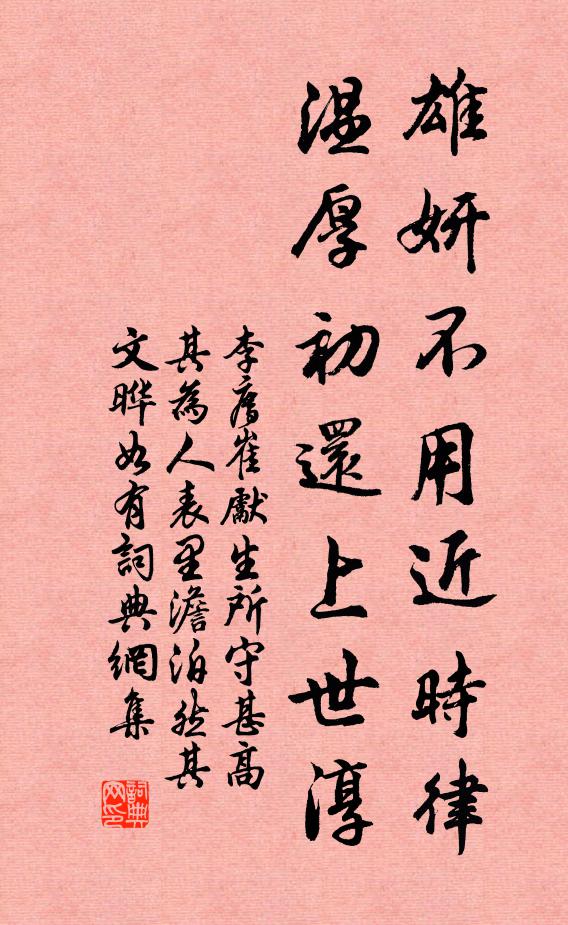 雄妍不用近時律
溫厚初還上世淳
李廌崔獻生所守甚高
其為人表里澹泊然其
文曄如有詞典網集
詞典
网印